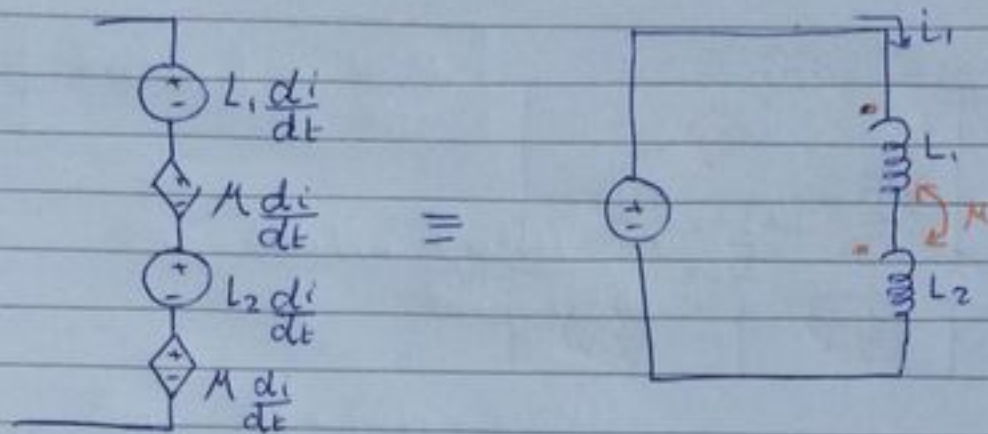 L₁ di/dt
M di/dt
L₂ di/dt
M di/dt
≡
i₁
L₁
M
L₂